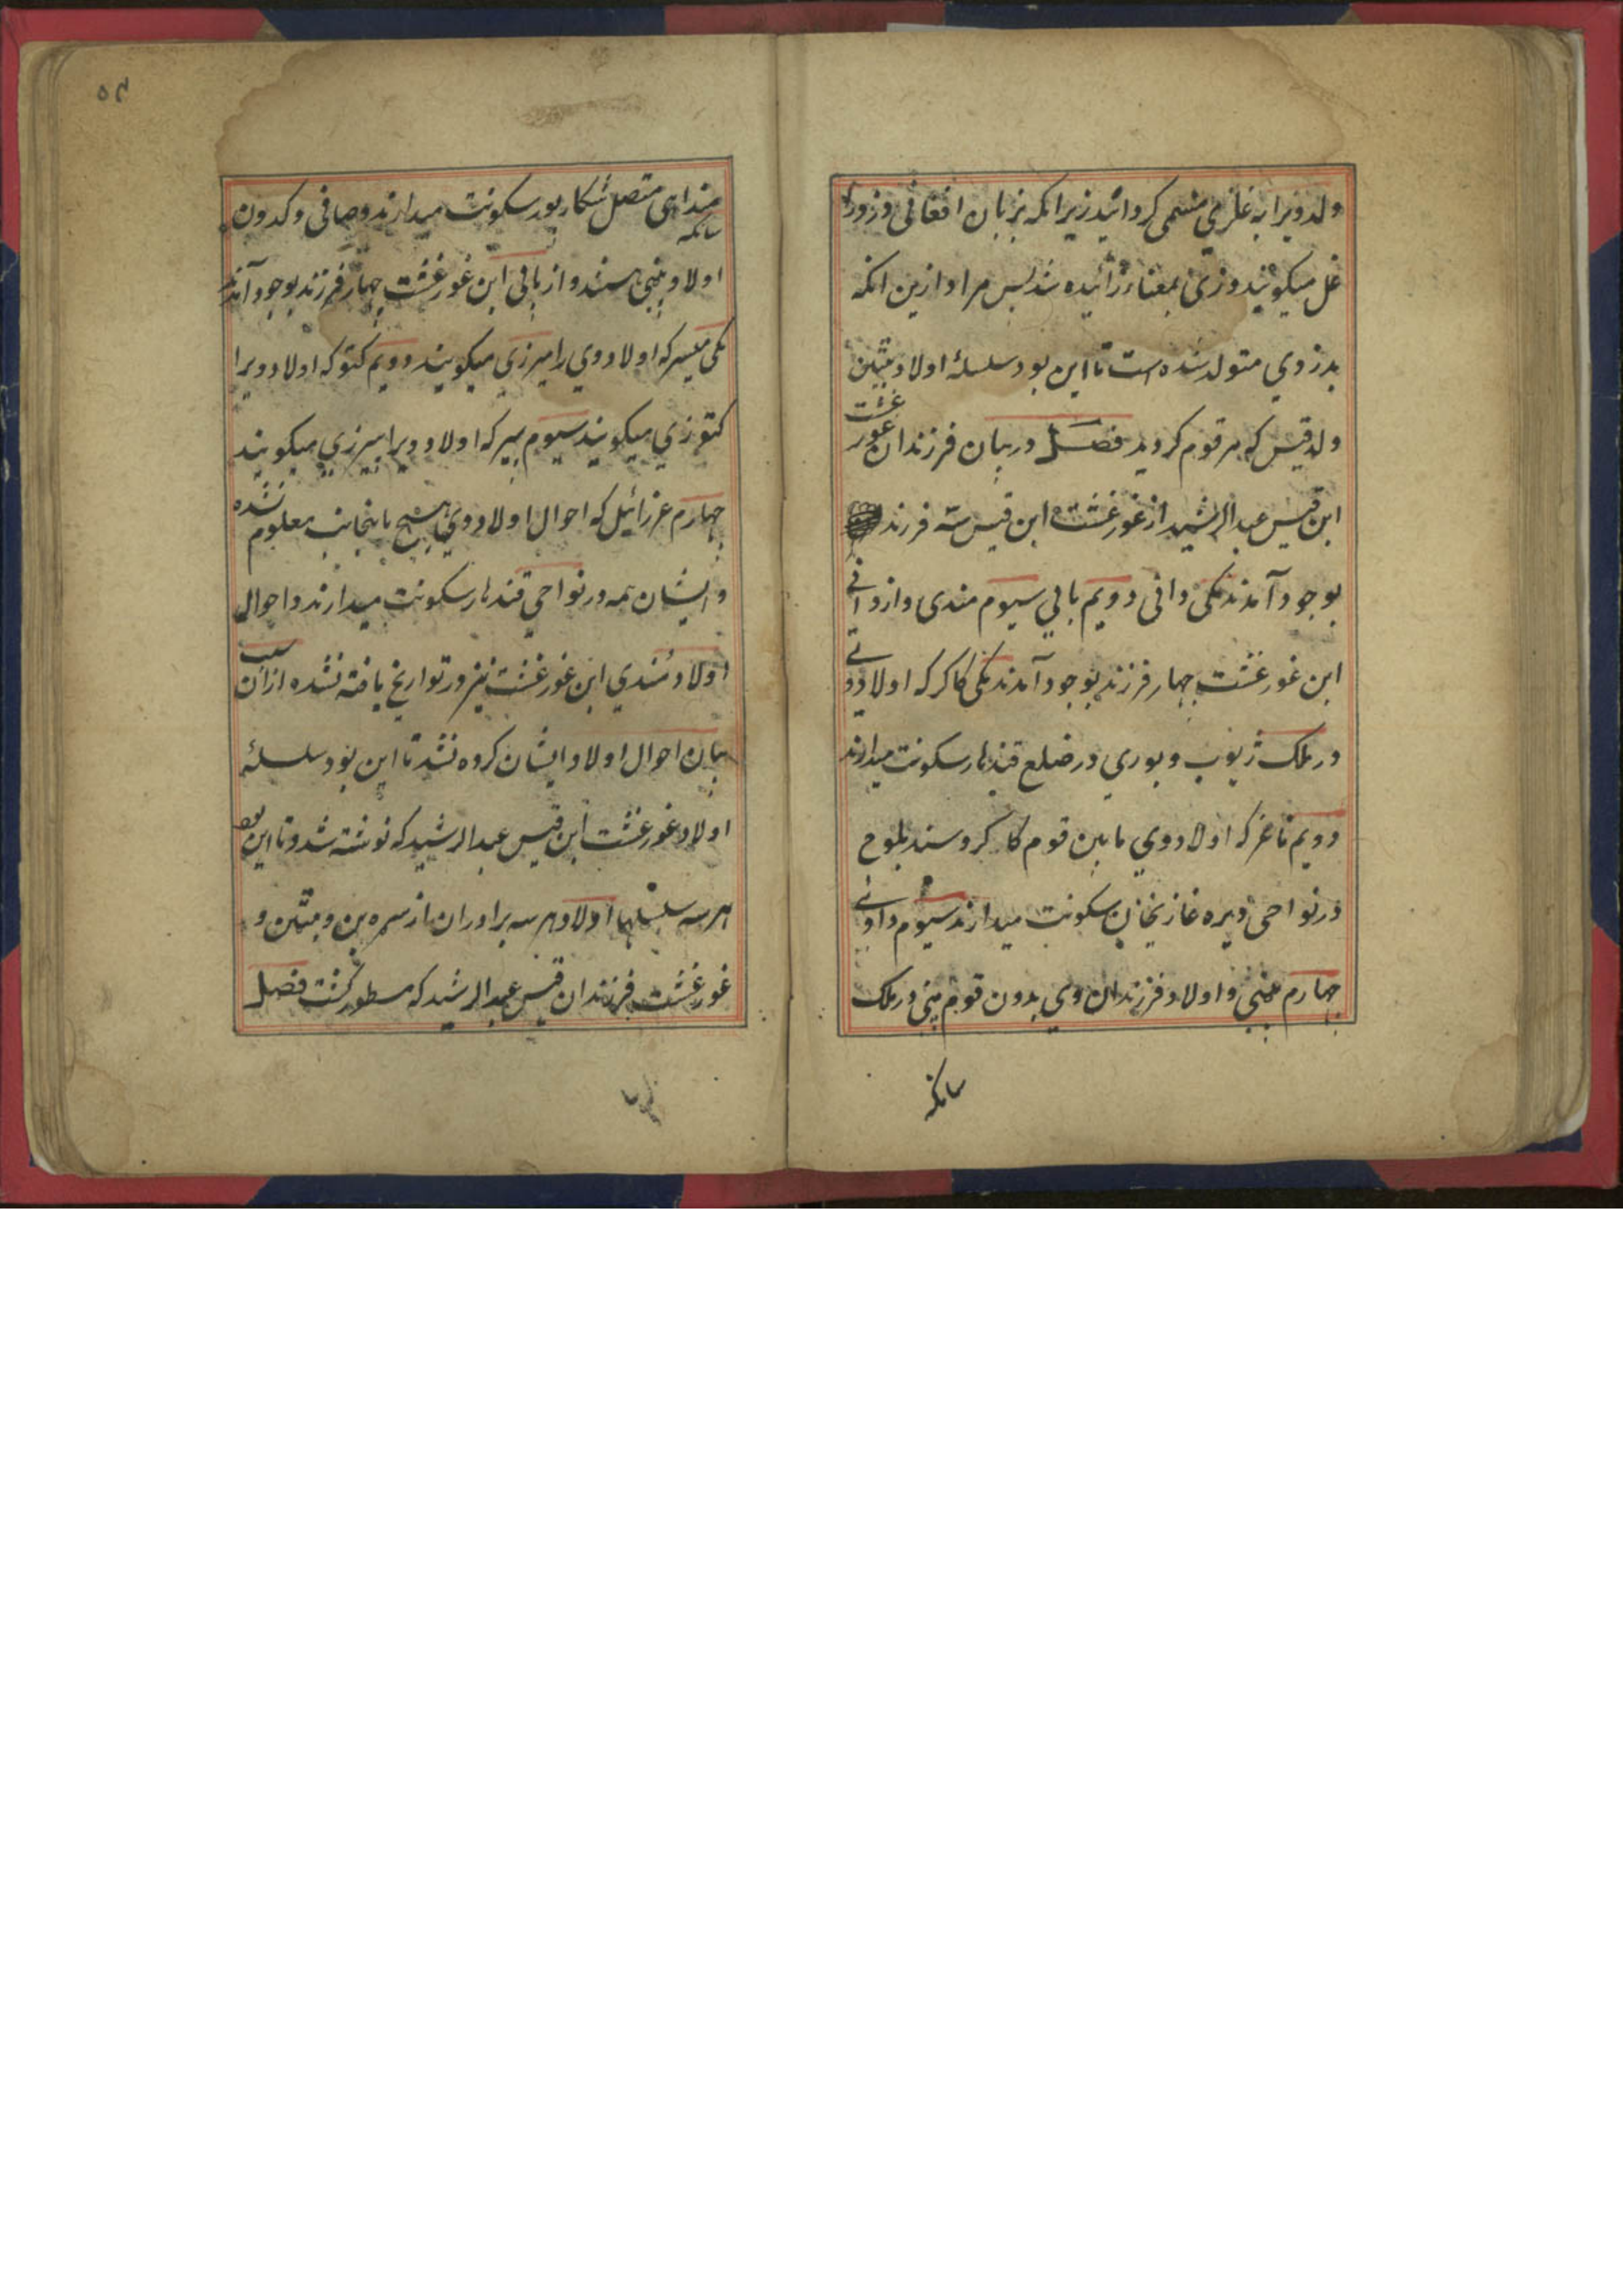 ولد ویرا به غلزی مسمی کردانید زیرا که بزبان افغانی دزد را
غل میکویند و زی بمعنا زائیده شد پس مراد ازین انکه
بدزدی متولد شده است تا این بود سلسلهٔ اولاد متین
ولد قیس که مرقوم کردید فصل در بیان فرزندان غورغشت
ابن قیس عبدالرشید از غورغشت ابن قیس سه فرزند
بوجود آمدند یکی دانی دویم بابی سیوم مندی و از دانی
ابن غورغشت چهار فرزند بوجود آمدند یکی کاکر که اولاد وی
در ملک ژیوب و بوری در ضلع قندهار سکونت میدارند
دویم ناغر که اولاد وی مابین قوم کاکر و سند بلوچ
در نواحی دیره غازیخان سکونت میدارند سیوم داوی
چهارم پنی و اولاد فرزندان وی بدون قوم پنی در ملک
سانکه
۵۴
سانکه
منداهی متصل شکارپور سکونت میدارند و صافی و کدون
اولاد پنی هستند و از بابی ابن غورغشت چهار فرزند بوجود آمدند
یکی میر که اولاد وی را میرزی میکویند دویم کتو که اولاد ویرا
کتوزی میکویند سیوم بیر که اولاد ویرا بیرزی میکویند
چهارم عزرائیل که احوال اولاد وی هیچ باینجانب معلوم نشده
و ایشان همه در نواحی قندهار سکونت میدارند و احوال
اولاد مندی ابن غورغشت نیز در تواریخ یافته نشده از آن سبب
بیان احوال اولاد ایشان کرده نشد تا این بود سلسلهٔ
اولاد غورغشت ابن قیس عبدالرشید که نوشته شد و تا این بود
هر سه سلسلها اولاد هر سه برادران از سره بن و متین و
غورغشت فرزندان قیس عبدالرشید که مسطور کشت فصل